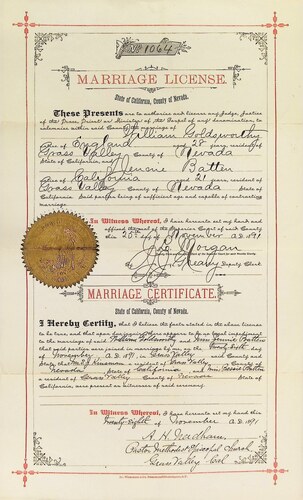 No. 1064
MARRIAGE LICENSE.
State of California, County of Nevada.
These Presents are to authorize and license any Judge, Justice
of the Peace, Priest or Minister of the Gospel of any denomination, to
solemnize within said County the marriage of William Goldsworthy
native of England aged 28 years, resident of
Grass Valley County of Nevada
State of California, and Jennie Batten
native of California aged 21 years, resident of
Grass Valley County of Nevada
State of California. Said parties being of sufficient age and capable of contracting
marriage.
In Witness Whereof, I have hereunto set my hand and
affixed the seal of the Superior Court of said County
this 28th day of November A.D. 1891
Morgan
Deputy Clerk.
MARRIAGE CERTIFICATE.
State of California, County of Nevada.
I Hereby Certify, that I believe the facts stated in the above license
to be true, and that upon due inquiry there appears to be no legal impediment
to the marriage of said William Goldsworthy and Miss Jennie Batten
that said parties were joined in marriage by me, on the
November A.D. 1891, in Grass Valley said County and
State; that
a resident of Grass Valley County of
Nevada State of California and Miss Bessie Batten
a resident of Grass Valley County of Nevada
California, were present as witnesses of said ceremony.
In Witness Whereof, I have hereunto set my hand this
Twenty Eighth of November A.D. 1891
A. H. Needham
Pastor Methodist Episcopal Church,
Grass Valley, Cal.